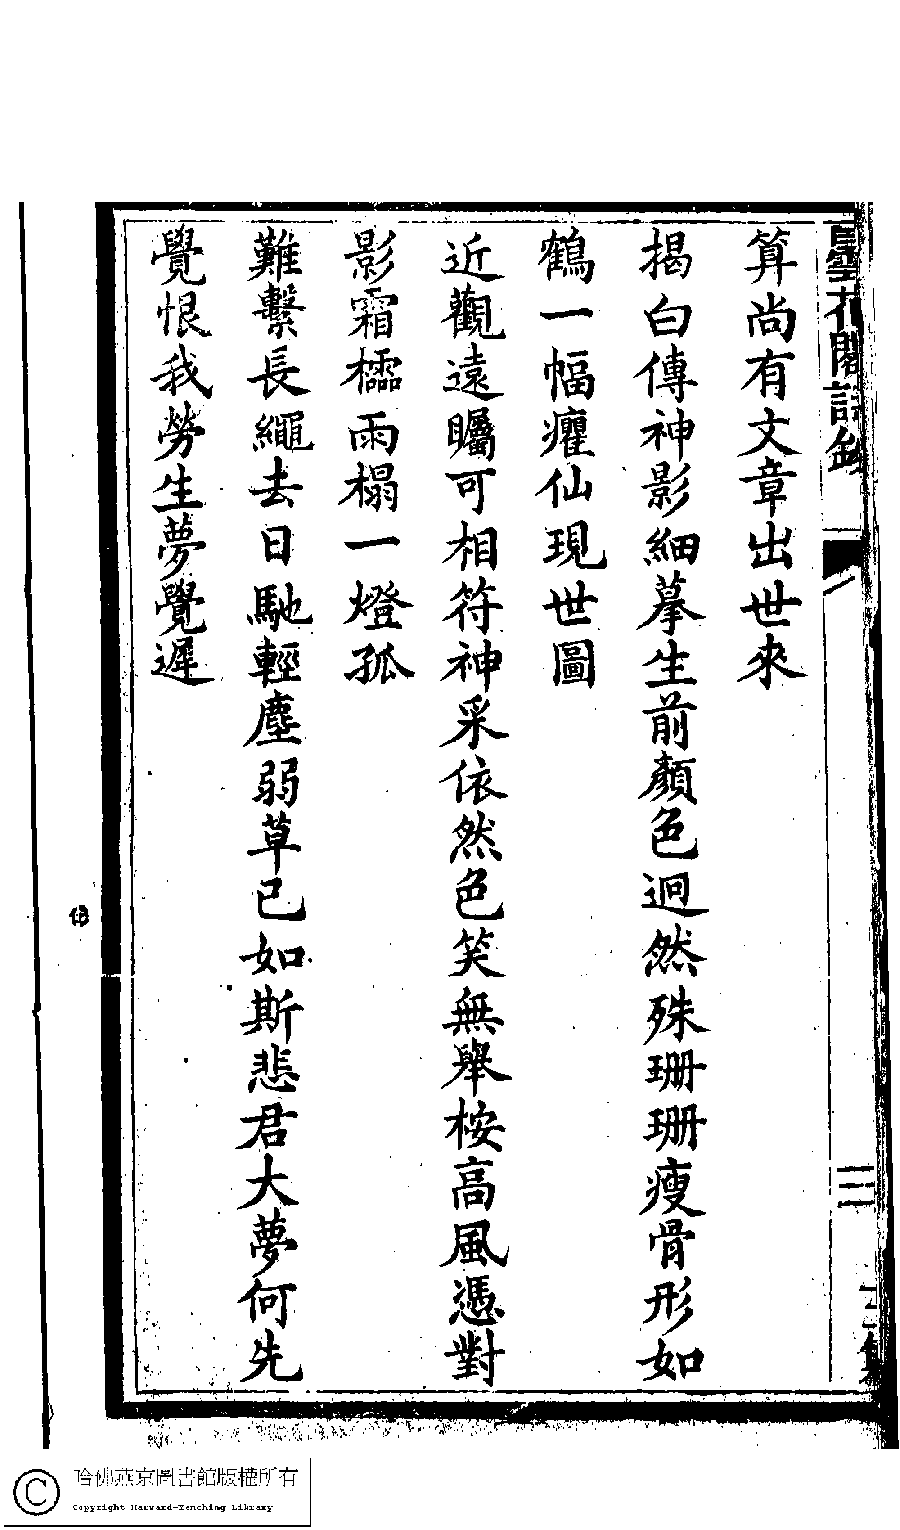 曇花閣詩鈔
三
算尚有文章出世來
揭白傳神影細摹生前顏色迥然殊珊珊瘦骨形如
鶴一幅癯仙現世圖
近觀遠矚可相符神采依然色笑無舉桉高風憑對
影霜櫺雨榻一燈孤
難繫長繩去日馳輕塵弱草已如斯悲君大夢何先
覺恨我勞生夢覺遲
哈佛燕京圖書館版權所有
Copyright Harvard-Yenching Library